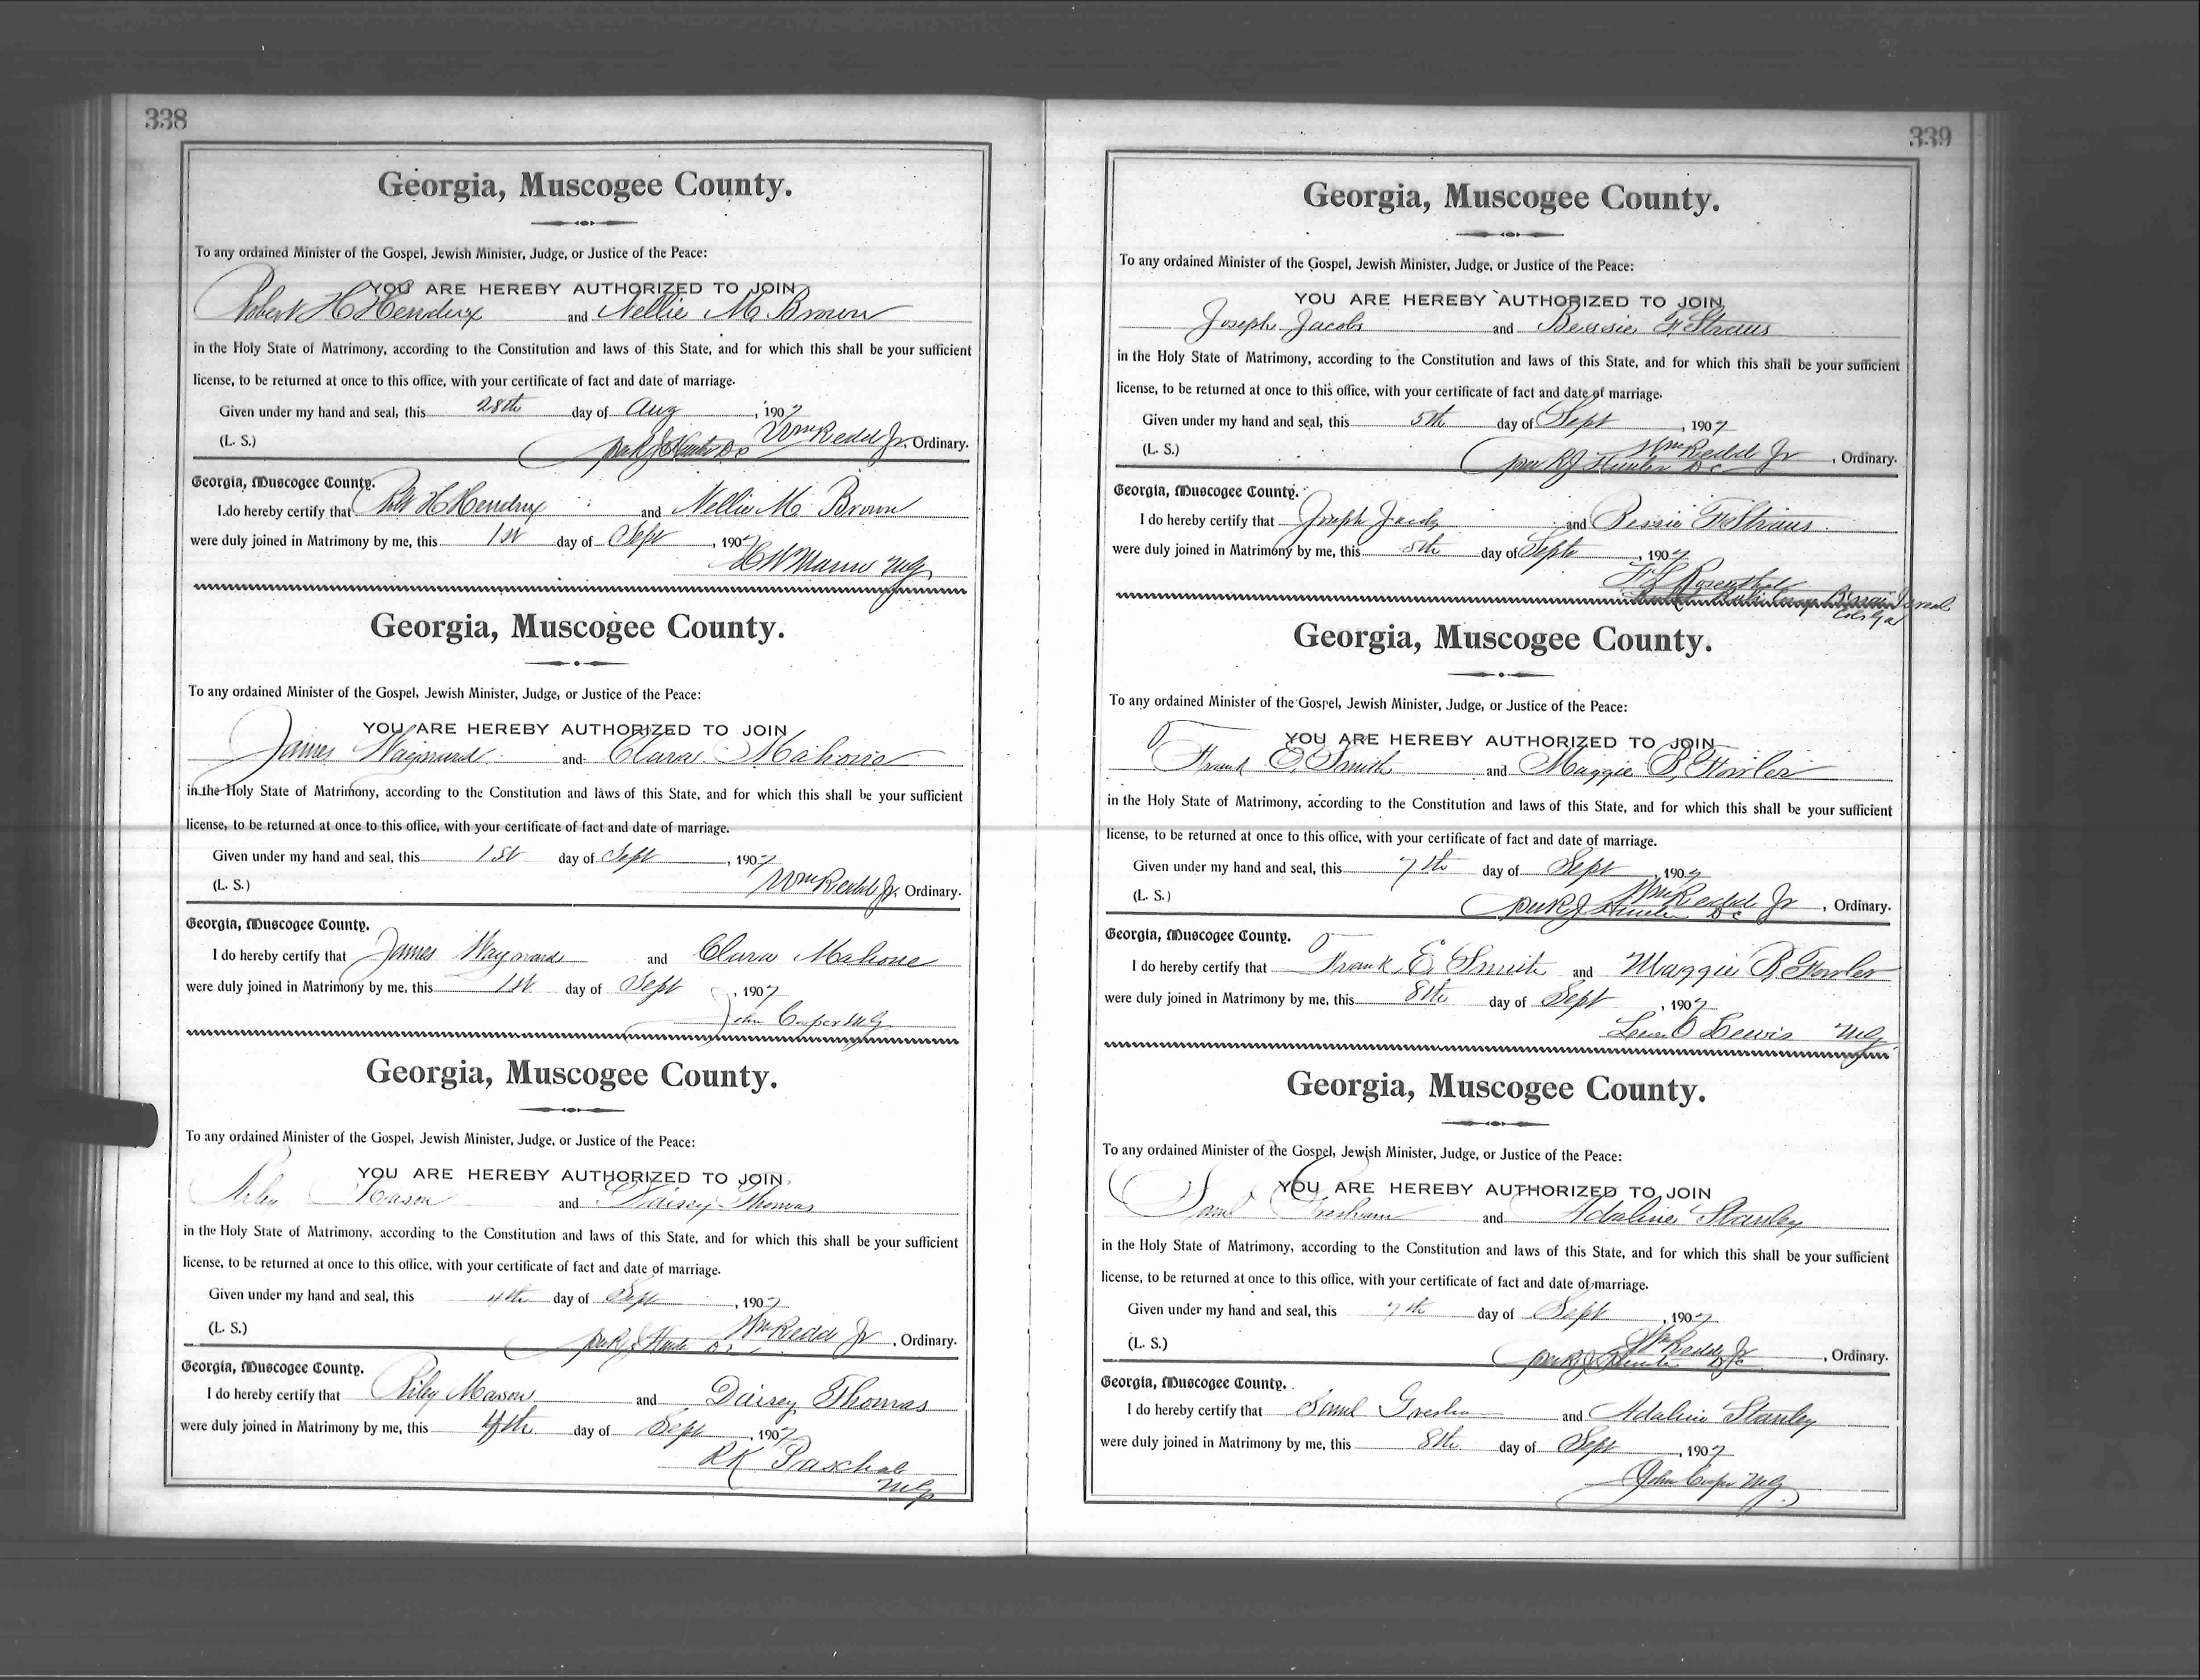 338
Georgia, Muscogee County.
To any ordained Minister of the Gospel, Jewish Minister, Judge, or Justice of the Peace:
YOU ARE HEREBY AUTHORIZED TO JOIN
Robert H Hendrix and Nellie M Brown
in the Holy State of Matrimony, according to the Constitution and laws of this State, and for which this shall be your sufficient
license, to be returned at once to this office, with your certificate of fact and date of marriage.
Given under my hand and seal, this 28th day of Aug, 1907
(L. S.) Wm Redd Jr, Ordinary.
per RJ Hunter DC
Georgia, Muscogee County.
I do hereby certify that Robt H Hendrix and Nellie M Brown
were duly joined in Matrimony by me, this 1st day of Sept, 1907
MG
Georgia, Muscogee County.
To any ordained Minister of the Gospel, Jewish Minister, Judge, or Justice of the Peace:
YOU ARE HEREBY AUTHORIZED TO JOIN
James and Clara Mahone
in the Holy State of Matrimony, according to the Constitution and laws of this State, and for which this shall be your sufficient
license, to be returned at once to this office, with your certificate of fact and date of marriage.
Given under my hand and seal, this 1st day of Sept, 1907
(L. S.) Wm Redd Jr, Ordinary.
Georgia, Muscogee County.
I do hereby certify that James and Clara Mahone
were duly joined in Matrimony by me, this 1st day of Sept, 1907
John Cooper MG
Georgia, Muscogee County.
To any ordained Minister of the Gospel, Jewish Minister, Judge, or Justice of the Peace:
YOU ARE HEREBY AUTHORIZED TO JOIN
Riley Mason and Daisey Thomas
in the Holy State of Matrimony, according to the Constitution and laws of this State, and for which this shall be your sufficient
license, to be returned at once to this office, with your certificate of fact and date of marriage.
Given under my hand and seal, this 4th day of Sept, 1907
(L. S.) Wm Redd Jr, Ordinary.
per RJ Hunter DC
Georgia, Muscogee County.
I do hereby certify that Riley Mason and Daisey Thomas
were duly joined in Matrimony by me, this 4th day of Sept, 1907
RK Paschal
MG
339
Georgia, Muscogee County.
To any ordained Minister of the Gospel, Jewish Minister, Judge, or Justice of the Peace:
YOU ARE HEREBY AUTHORIZED TO JOIN
Joseph Jacobs and Bessie F. Straus
in the Holy State of Matrimony, according to the Constitution and laws of this State, and for which this shall be your sufficient
license, to be returned at once to this office, with your certificate of fact and date of marriage.
Given under my hand and seal, this 5th day of Sept, 1907
(L. S.) Wm Redd Jr, Ordinary.
per RJ Hunter DC
Georgia, Muscogee County.
I do hereby certify that Joseph Jacobs and Bessie F Straus
were duly joined in Matrimony by me, this 5th day of Sept, 1907
F L Rosenthal
Rabbi Cong B'nai Israel
Cols Ga
Georgia, Muscogee County.
To any ordained Minister of the Gospel, Jewish Minister, Judge, or Justice of the Peace:
YOU ARE HEREBY AUTHORIZED TO JOIN
Frank E. Smith and Maggie B. Fowler
in the Holy State of Matrimony, according to the Constitution and laws of this State, and for which this shall be your sufficient
license, to be returned at once to this office, with your certificate of fact and date of marriage.
Given under my hand and seal, this 7th day of Sept, 1907
(L. S.) Wm Redd Jr, Ordinary.
per RJ Hunter DC
Georgia, Muscogee County.
I do hereby certify that Frank E. Smith and Maggie B Fowler
were duly joined in Matrimony by me, this 8th day of Sept, 1907
Lewis MG
Georgia, Muscogee County.
To any ordained Minister of the Gospel, Jewish Minister, Judge, or Justice of the Peace:
YOU ARE HEREBY AUTHORIZED TO JOIN
Saml Gresham and Adaline Stanley
in the Holy State of Matrimony, according to the Constitution and laws of this State, and for which this shall be your sufficient
license, to be returned at once to this office, with your certificate of fact and date of marriage.
Given under my hand and seal, this 7th day of Sept, 1907
(L. S.) Wm Redd Jr, Ordinary.
per RJ Hunter DC
Georgia, Muscogee County.
I do hereby certify that Saml and Adaline Stanley
were duly joined in Matrimony by me, this 8th day of Sept, 1907
John Cooper MG